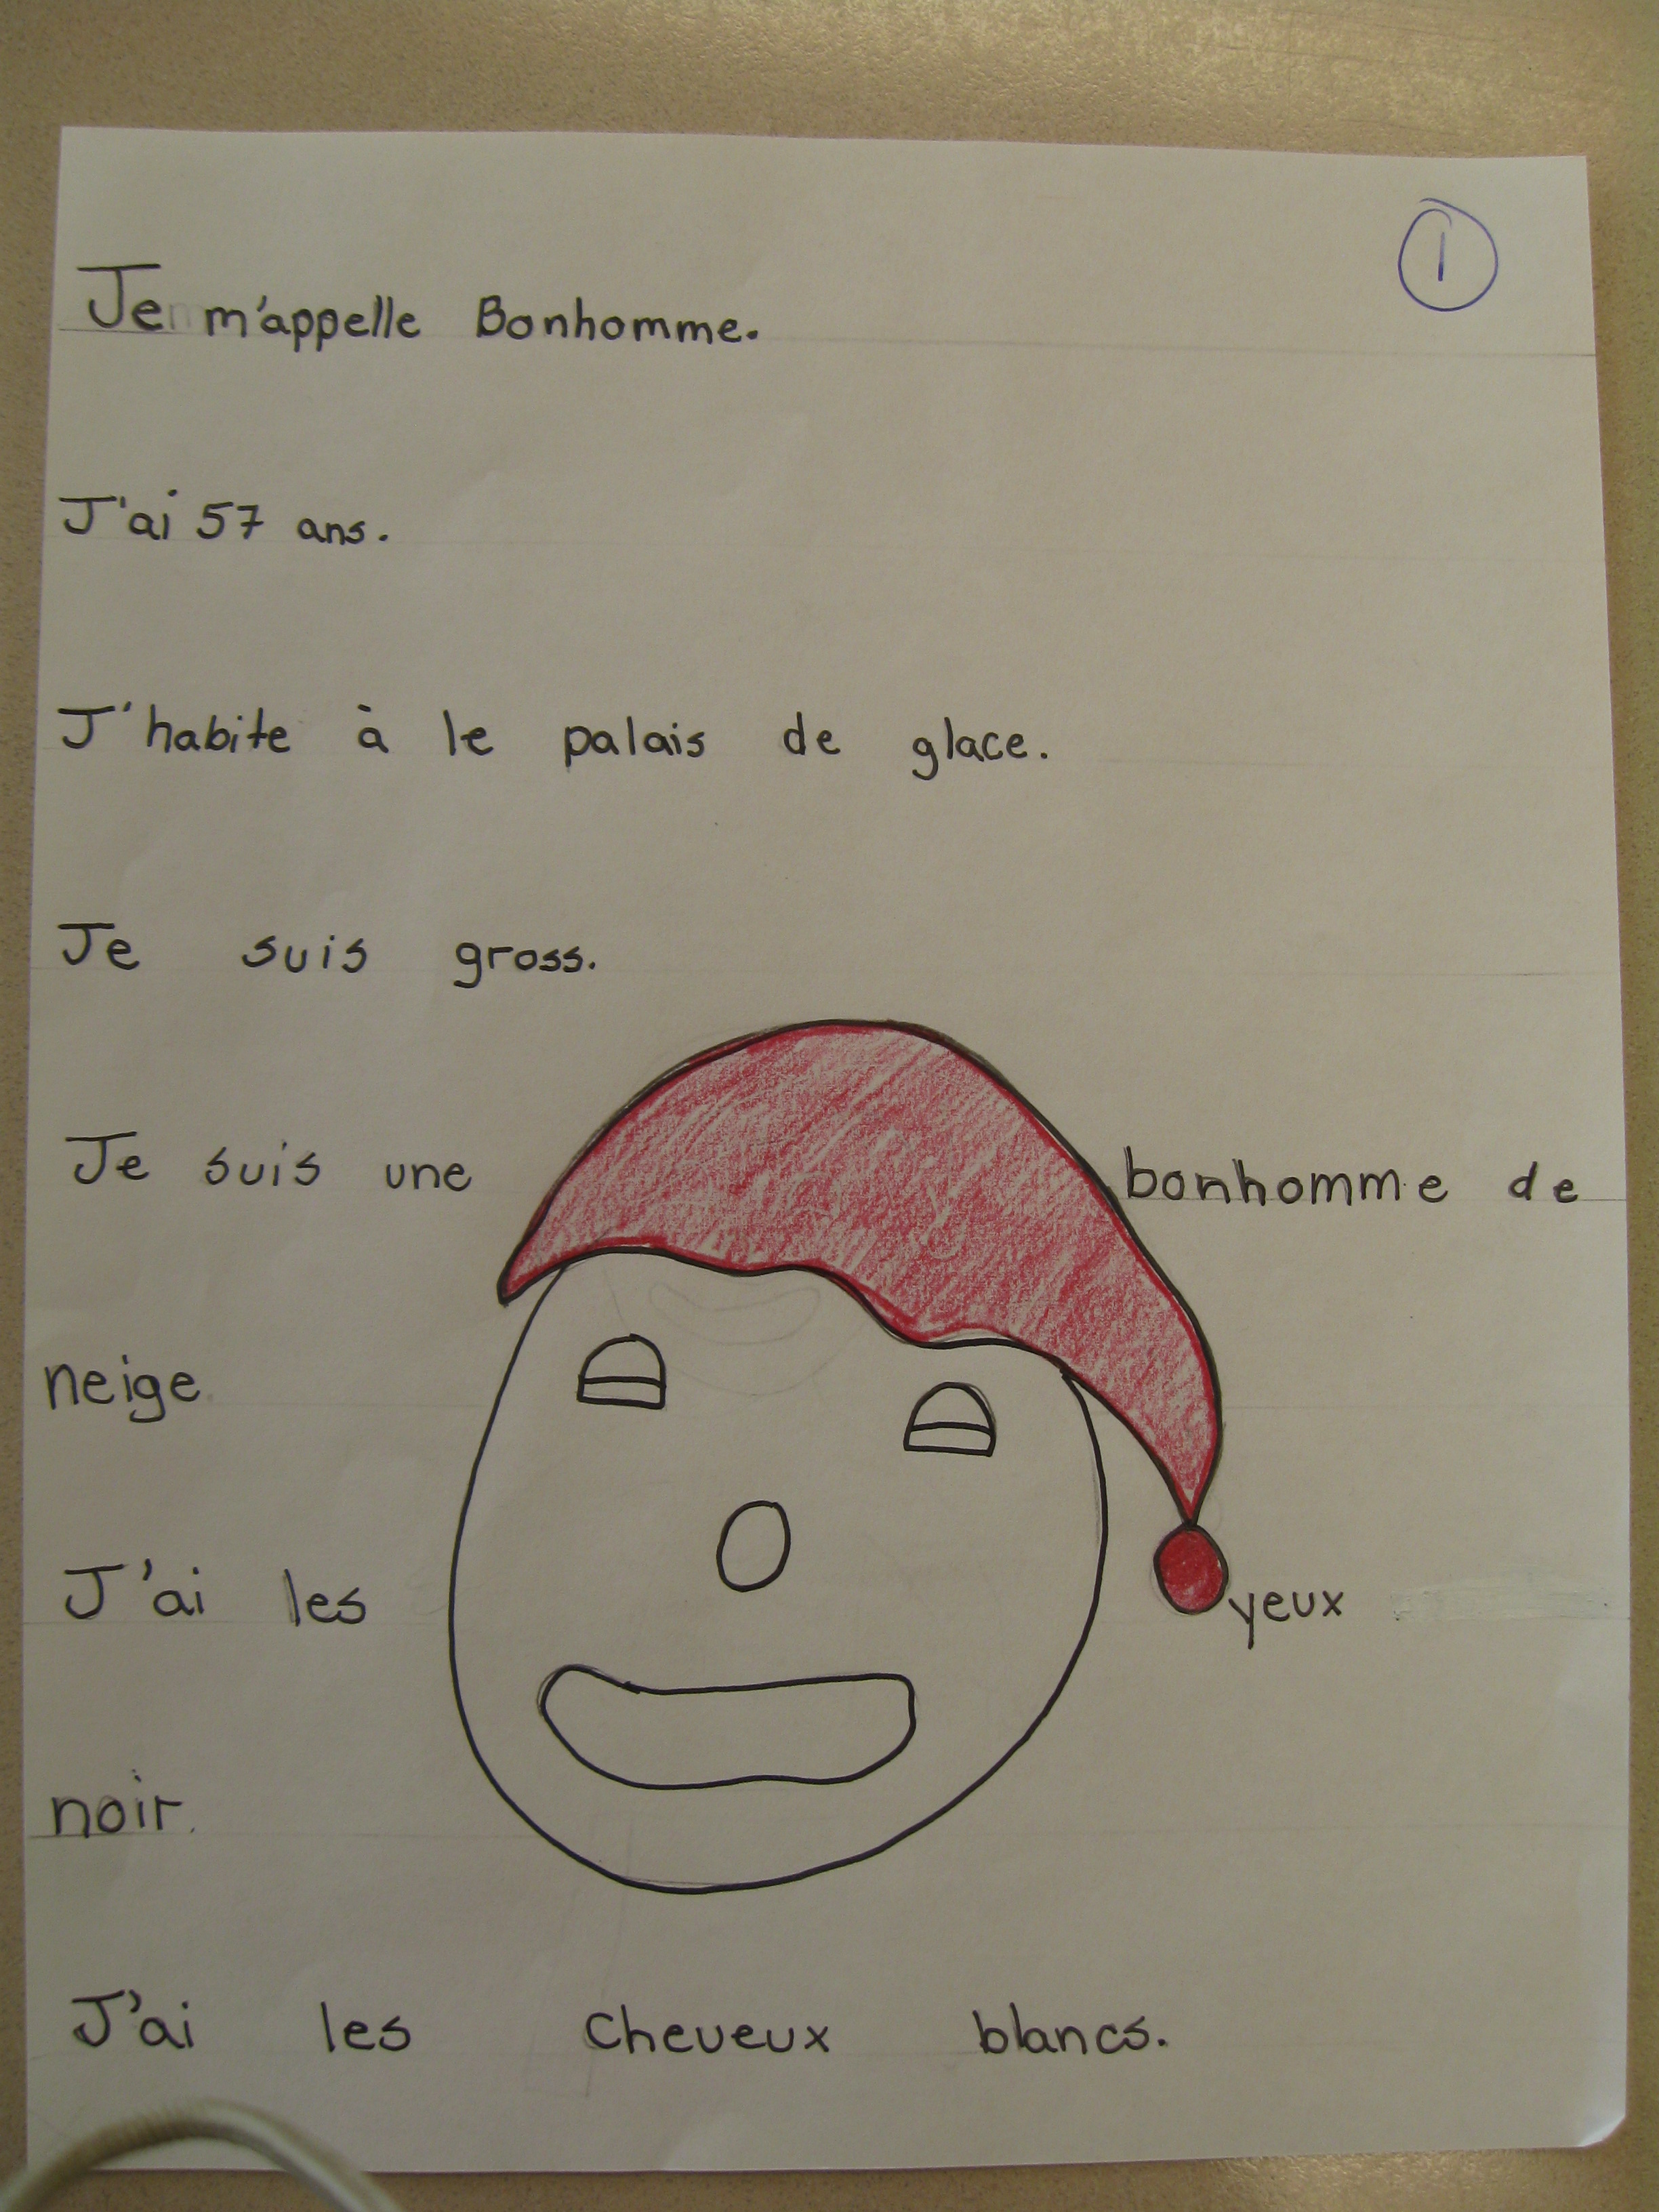 1
Je m'appelle Bonhomme.
J'ai 57 ans.
J'habite à le palais de glace.
Je suis gross.
Je suis une bonhomme de
neige.
J'ai les yeux
noir.
J'ai les cheveux blancs.